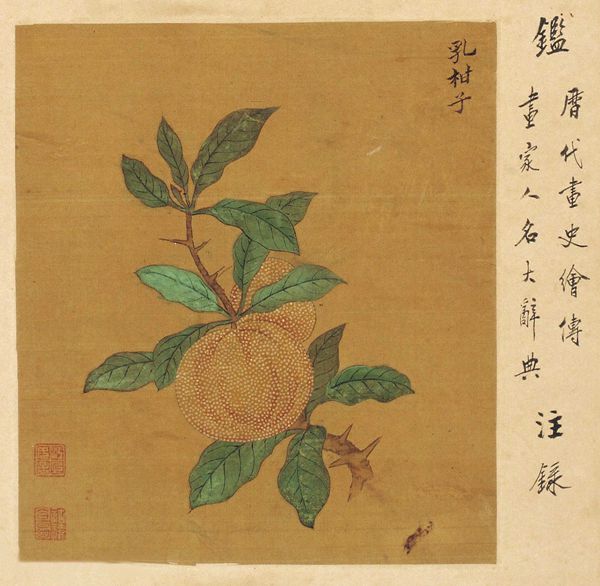 乳柑子
鑑
曆代畫史繪傳
畫家人名大辭典
注錄